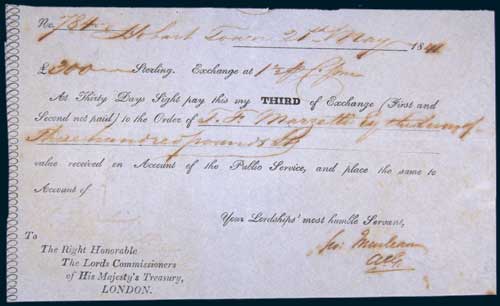 No. 784 Hobart Town 21st May 1841
£300 Sterling. Exchange at 1
At Thirty Days Sight pay this my THIRD of Exchange (First and
Second not paid) to the Order of J. F. Marzetti Esq the Sum of
Three hundred pounds Stg
value received on Account of the Public Service, and place the same to
Account of
Your Lordships' most humble Servant,
To
The Right Honorable
The Lords Commissioners
of His Majesty's Treasury,
LONDON.